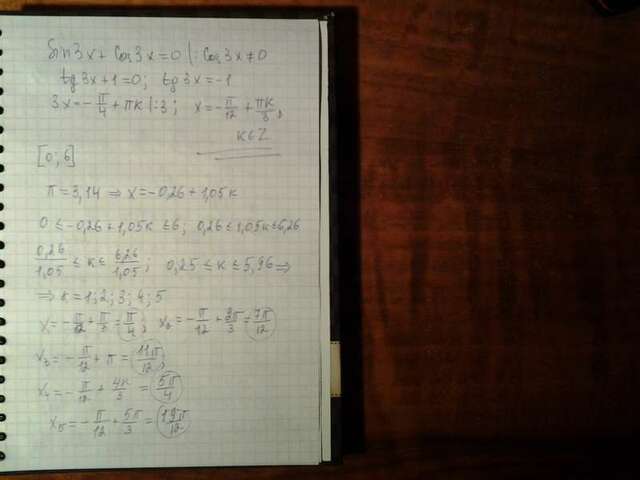 Sin3x + Cos3x = 0 |: Cos3x ≠ 0
tg3x + 1 = 0; tg3x = -1
3x = -π/4 + πk |:3; x = -π/12 + πk/3,
k∈Z
[0; 6]
π = 3,14 ⇒ x = -0,26 + 1,05k
0 ≤ -0,26 + 1,05k ≤ 6; 0,26 ≤ 1,05k ≤ 6,26
0,26/1,05 ≤ k ≤ 6,26/1,05; 0,25 ≤ k ≤ 5,96 ⇒
⇒ k = 1; 2; 3; 4; 5
x₁ = -π/12 + π/3 = π/4; x₂ = -π/12 + 2π/3 = 7π/12
x₃ = -π/12 + π = 11π/12;
x₄ = -π/12 + 4π/3 = 5π/4
x₅ = -π/12 + 5π/3 = 19π/12